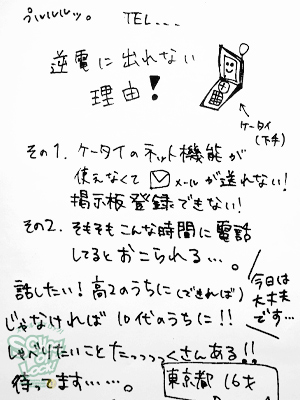 プルルルッ。 TEL...
逆電に出れない
理由!
ケータイ
(下手)
その1. ケータイのネット機能が
使えなくて メールが送れない!
掲示板登録できない!
その2. そもそもこんな時間に電話
してるとおこられる…。
今日は
大丈夫
です…
話したい!高2のうちに(できれば)
じゃなければ10代のうちに!!
しゃべりたいことたっっっくさんある!!
待ってます……。
東京都 16才